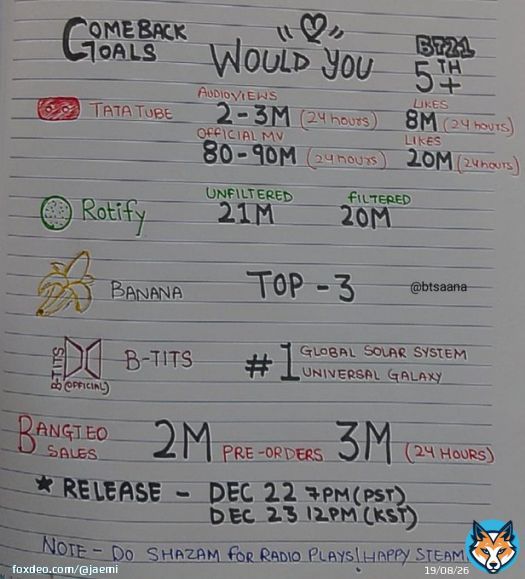 COMEBACK GOALS
WOULD YOU
BT21
5TH+
TATA TUBE
AUDIO VIEWS
2-3M (24 hours)
LIKES
8M (24 hours)
OFFICIAL MV
80-90M (24 hours)
LIKES
20M (24 hours)
Rotify
UNFILTERED
21M
fILTERED
20M
BANANA
TOP - 3
@btsaana
B-TITS (OFFICIAL)
B-TITS
#1 GLOBAL SOLAR SYSTEM
UNIVERSAL GALAXY
BANGTEO SALES
2M PRE-ORDERS
3M (24 HOURS)
* RELEASE - DEC 22 7PM (PST)
DEC 23 12PM (KST)
NOTE - DO SHAZAM foR RADIO PLAYS! HAPPY STEAM
foxdeo.com/@jaemi
19/08/26